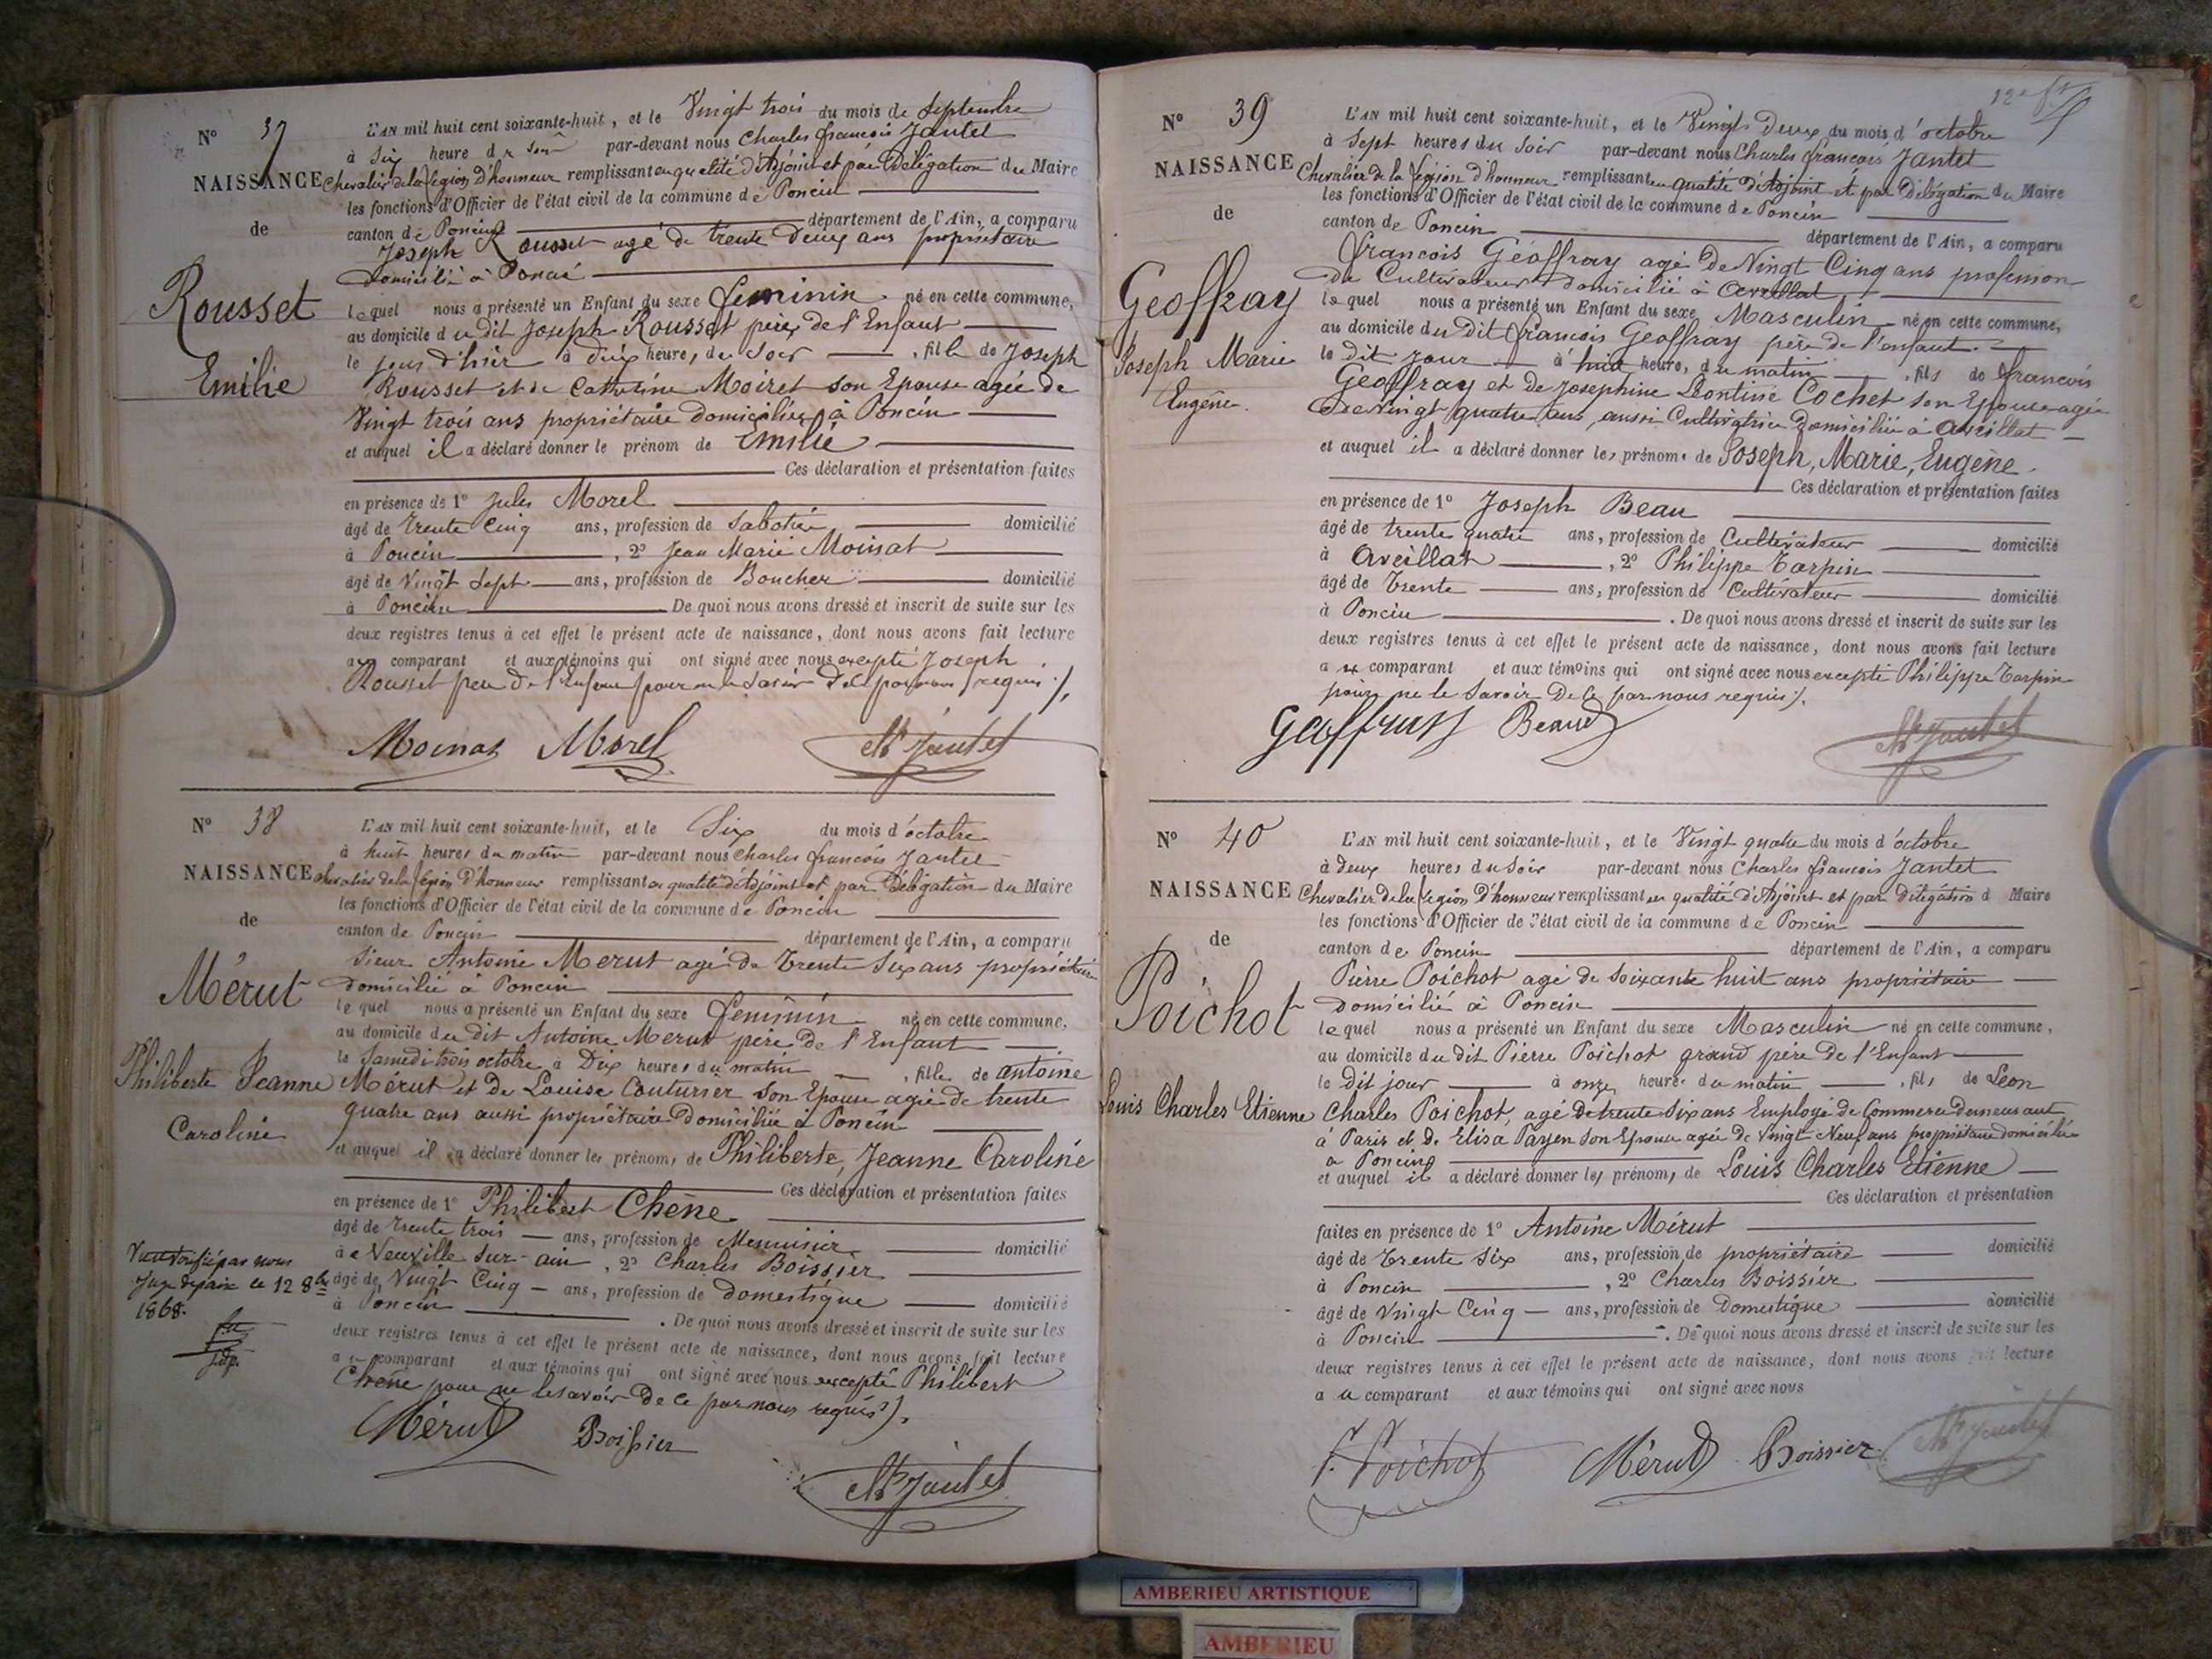 N° 37
NAISSANCE
de
Rousset
Emilie
L'AN mil huit cent soixante-huit, et le Vingt trois du mois de Septembre
à Six heure du Soir par-devant nous Charles françois Jantet
Chevalier de la légion d'honneur remplissant en qualité d'Adjoint et par Délégation du Maire
les fonctions d'Officier de l'état civil de la commune de Poncin
canton de Poncin département de l'Ain, a comparu
Joseph Rousset agé de trente Deux ans propriétaire
domicilié à Poncin
lequel nous a présenté un Enfant du sexe féminin né en cette commune,
au domicile du dit Joseph Rousset père de l'Enfant
le jour d'hier à Dix heure, du Soir , fille de Joseph
Rousset et de Catherine Moiret son Epouse agée de
Vingt trois ans propriétaire domiciliée à Poncin
et auquel il a déclaré donner le prénom de Emilie
Ces déclaration et présentation faites
en présence de 1° Jules Morel
âgé de trente Cinq ans, profession de Sabotier domicilié
à Poncin , 2° Jean Marie Moinat
âgé de Vingt Sept ans, profession de Boucher domicilié
à Poncin De quoi nous avons dressé et inscrit de suite sur les
deux registres tenus à cet effet le présent acte de naissance, dont nous avons fait lecture
au comparant et aux témoins qui ont signé avec nous excepté Joseph
Rousset père de l'Enfant pour ne le Savoir De ce par nous requis ./.
Moinat Morel Ch Jantet
N° 38
NAISSANCE
de
Mérut
Philiberte Jeanne
Caroline
L'AN mil huit cent soixante-huit, et le Six du mois d'octobre
à huit heures du matin par-devant nous Charles françois Jantet
chevalier de la légion d'honneur remplissant en qualité d'Adjoint et par Délégation du Maire
les fonctions d'Officier de l'état civil de la commune de Poncin
canton de Poncin département de l'Ain, a comparu
Sieur Antoine Merut agé de Trente Six ans propriétaire
domicilié à Poncin
lequel nous a présenté un Enfant du sexe féminin né en cette commune,
au domicile du dit Antoine Merut père de l'Enfant
le Samedi trois octobre à Dix heures du matin , fille de antoine
Mérut et de Louise Couturier son Epouse agée de trente
quatre ans aussi propriétaire Domiciliée à Poncin
et auquel il a déclaré donner les prénoms de Philiberte, Jeanne Caroline
Ces déclaration et présentation faites
en présence de 1° Philibert Chêne
âgé de trente trois ans, profession de Menuisier domicilié
à Neuville Sur-ain , 2° Charles Boissier
âgé de Vingt Cinq ans, profession de Domestique domicilié
à Poncin . De quoi nous avons dressé et inscrit de suite sur les
deux registres tenus à cet effet le présent acte de naissance, dont nous avons fait lecture
au comparant et aux témoins qui ont signé avec nous excepté Philibert
Chêne pour ne le savoir De ce par nous requis ./.
Vu et vérifié par nous
Juge de paix ce 12 8bre
1868.
Mérut Boissier
Ch Jantet
N° 39
NAISSANCE
de
Geoffray
Joseph Marie
Eugène
L'AN mil huit cent soixante-huit, et le Vingt Deux du mois d'octobre
à Sept heures du Soir par-devant nous Charles françois Jantet
Chevalier de la légion d'honneur remplissant en qualité d'Adjoint et par Délégation du Maire
les fonctions d'Officier de l'état civil de la commune de Poncin
canton de Poncin département de l'Ain, a comparu
françois Géoffray agé De Vingt Cinq ans profession
de Cultivateur domicilié à Aveillat
lequel nous a présenté un Enfant du sexe Masculin né en cette commune,
au domicile du Dit françois Geoffray père de l'enfant
le dit jour à huit heure, du matin , fils de françois
Geoffray et de Josephine Léontine Cochet son Epouse agée
De Vingt quatre ans, aussi Cultivatrice Domiciliée à Aveillat
et auquel il a déclaré donner les prénoms de Joseph, Marie, Eugène.
Ces déclaration et présentation faites
en présence de 1° Joseph Beau
âgé de trente quatre ans, profession de Cultivateur domicilié
à Aveillat , 2° Philippe Tarpin
âgé de Trente ans, profession de Cultivateur domicilié
à Poncin . De quoi nous avons dressé et inscrit de suite sur les
deux registres tenus à cet effet le présent acte de naissance, dont nous avons fait lecture
au comparant et aux témoins qui ont signé avec nous excepté Philippe Tarpin
pour ne le Savoir De ce par nous requis ./.
Geoffray Beau Ch Jantet
N° 40
NAISSANCE
de
Poichot
Louis Charles Etienne
L'AN mil huit cent soixante-huit, et le Vingt quatre du mois d'octobre
à deux heures du Soir par-devant nous Charles françois Jantet
Chevalier de la légion d'honneur remplissant en qualité d'Adjoint et par délégation d Maire
les fonctions d'Officier de l'état civil de la commune de Poncin
canton de Poncin département de l'Ain, a comparu
Pierre Poichot agé de Soixante huit ans propriétaire
Domicilié à Poncin
lequel nous a présenté un Enfant du sexe Masculin né en cette commune,
au domicile du dit Pierre Poichot grand père de l'Enfant
le dit jour à onze heure, du matin , fils de Leon
Charles Poichot, agé de trente Six ans Employé de Commerce Demeurant
à Paris et de Elisa Payen Son Epouse agée De Vingt Neuf ans propriétaire domiciliée
a Poncin
et auquel il a déclaré donner les prénoms de Louis Charles Etienne
Ces déclaration et présentation
faites en présence de 1° Antoine Mérut
âgé de Trente Six ans, profession de propriétaire domicilié
à Poncin , 2° Charles Boissier
âgé de Vingt Cinq ans, profession de Domestique domicilié
à Poncin . De quoi nous avons dressé et inscrit de suite sur les
deux registres tenus à cet effet le présent acte de naissance, dont nous avons fait lecture
au comparant et aux témoins qui ont signé avec nous
P. Poichot Mérut Boissier Ch Jantet
AMBERIEU ARTISTIQUE
AMBERIEU